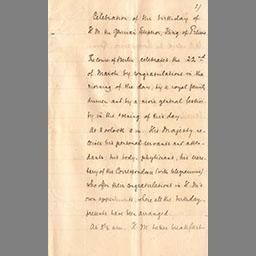 21
Celebration of the birthday of
H.M. the German Emperor, King of Prussia
The Court of Berlin celebrates the 22nd
of March by congratulations in the
morning of the day, by a royal family
dinner and by a more general festivi-
ty in the evening of this day.
At 8 o'clock a.m. His Majesty re-
ceives his personal servants and atten-
dants: his body, physicians, his secre-
tary of the Correspondence
who offer their congratulations in H.M's
own appartments, where all the birthday-
presents have been arranged.
At 9½ a.m. H.M. takes breakfast